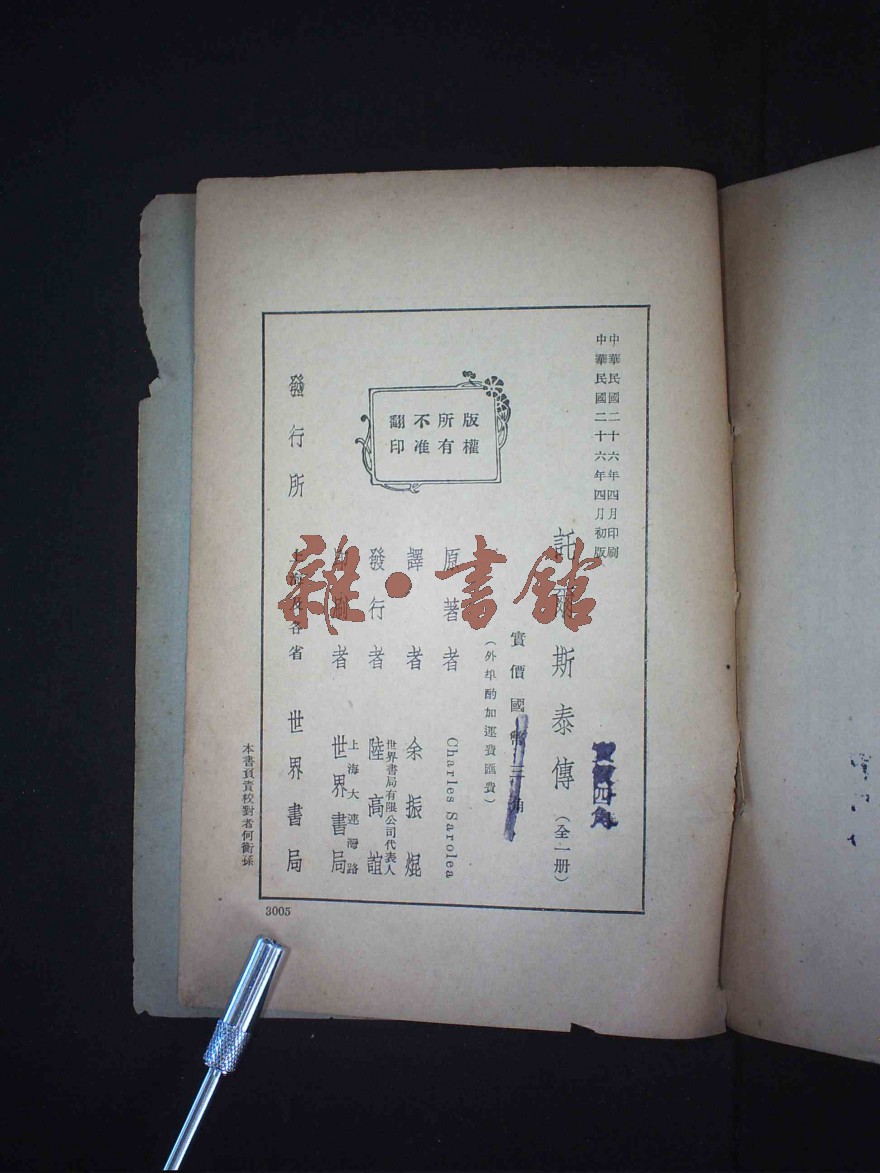 中華民國二十六年四月印刷
中華民國二十六年四月初版
託爾斯泰傳（全一册）
實價四角
實價國幣三角
（外埠酌加運費匯費）
原著者 Charles Sarolea
譯者 余振焜
發行者 世界書局有限公司代表人 陸高誼
印刷者 上海大連灣路 世界書局
發行所 上海及各省 世界書局
版權所有不准翻印
本書負責校對者何衡孫
3005
雜·書館